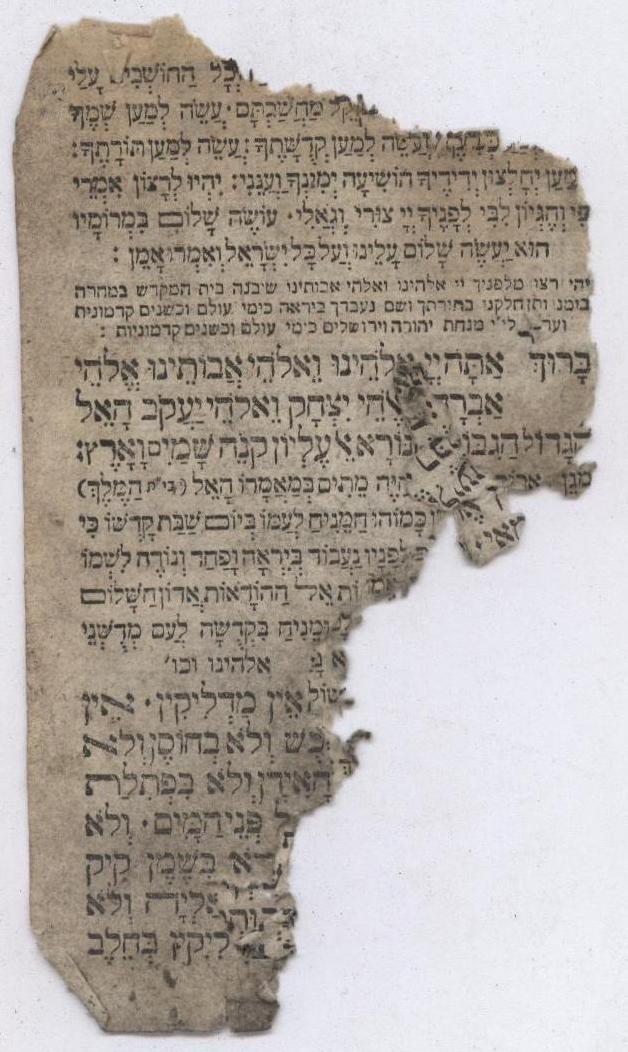 וְכָל הַחוֹשְׁבִים עָלַי
וְקַלְקֵל מַחֲשַׁבְתָּם· עֲשֵׂה לְמַעַן שְׁמֶךָ
עֲשֵׂה לְמַעַן קְדֻשָּׁתֶךָ: עֲשֵׂה לְמַעַן תּוֹרָתֶךָ:
לְמַעַן יֵחָלְצוּן יְדִידֶיךָ הוֹשִׁיעָה יְמִינְךָ וַעֲנֵנִי: יִהְיוּ לְרָצוֹן אִמְרֵי
פִי וְהֶגְיוֹן לִבִּי לְפָנֶיךָ יְיָ צוּרִי וְגֹאֲלִי· עוֹשֶׂה שָׁלוֹם בִּמְרוֹמָיו
הוּא יַעֲשֶׂה שָׁלוֹם עָלֵינוּ וְעַל כָּל יִשְׂרָאֵל וְאִמְרוּ אָמֵן :
יהי רצון מלפניך יי אלהינו ואלהי אבותינו שיבנה בית המקדש במהרה
בימנו ותן חלקנו בתורתך ושם נעבדך ביראה כימי עולם וכשנים קדמונית
וערבה ליי מנחת יהודה וירושלים כימי עולם וכשנים קדמוניות :
בָּרוּךְ אַתָּה יְיָ אֱלֹהֵינוּ וֵאלֹהֵי אֲבוֹתֵינוּ אֱלֹהֵי
אַבְרָהָם אֱלֹהֵי יִצְחָק וֵאלֹהֵי יַעֲקֹב הָאֵל
הַגָּדוֹל הַגִּבּוֹר וְהַנּוֹרָא אֵל עֶלְיוֹן קֹנֵה שָׁמַיִם וָאָרֶץ:
מָגֵן אבות מְחַיֵּה מֵתִים בְּמַאֲמָרוֹ הָאֵל (בי״ת הַמֶּלֶךְ)
שאין כָּמוֹהוּ הַמֵּנִיחַ לְעַמּוֹ בְּיוֹם שַׁבַּת קָדְשׁוֹ כִּי
לְפָנָיו נַעֲבוֹד בְּיִרְאָה וָפַחַד וְנוֹדֶה לִשְׁמוֹ
אֵל הַהוֹדָאוֹת אֲדוֹן הַשָּׁלוֹם
וּמֵנִיחַ בִּקְדֻשָּׁה לְעַם מְדֻשְּׁנֵי
אלהינו וכו׳
אֵין מַדְלִיקִין· אֵין
וְלֹא בְחוֹסֶן וְלֹא
הָאִידָן וְלֹא בִפְתִלַת
פְּנֵי הַמָּיִם· וְלֹא
בְּשֶׁמֶן קִיק
וְלֹא
בְּחֵלֶב